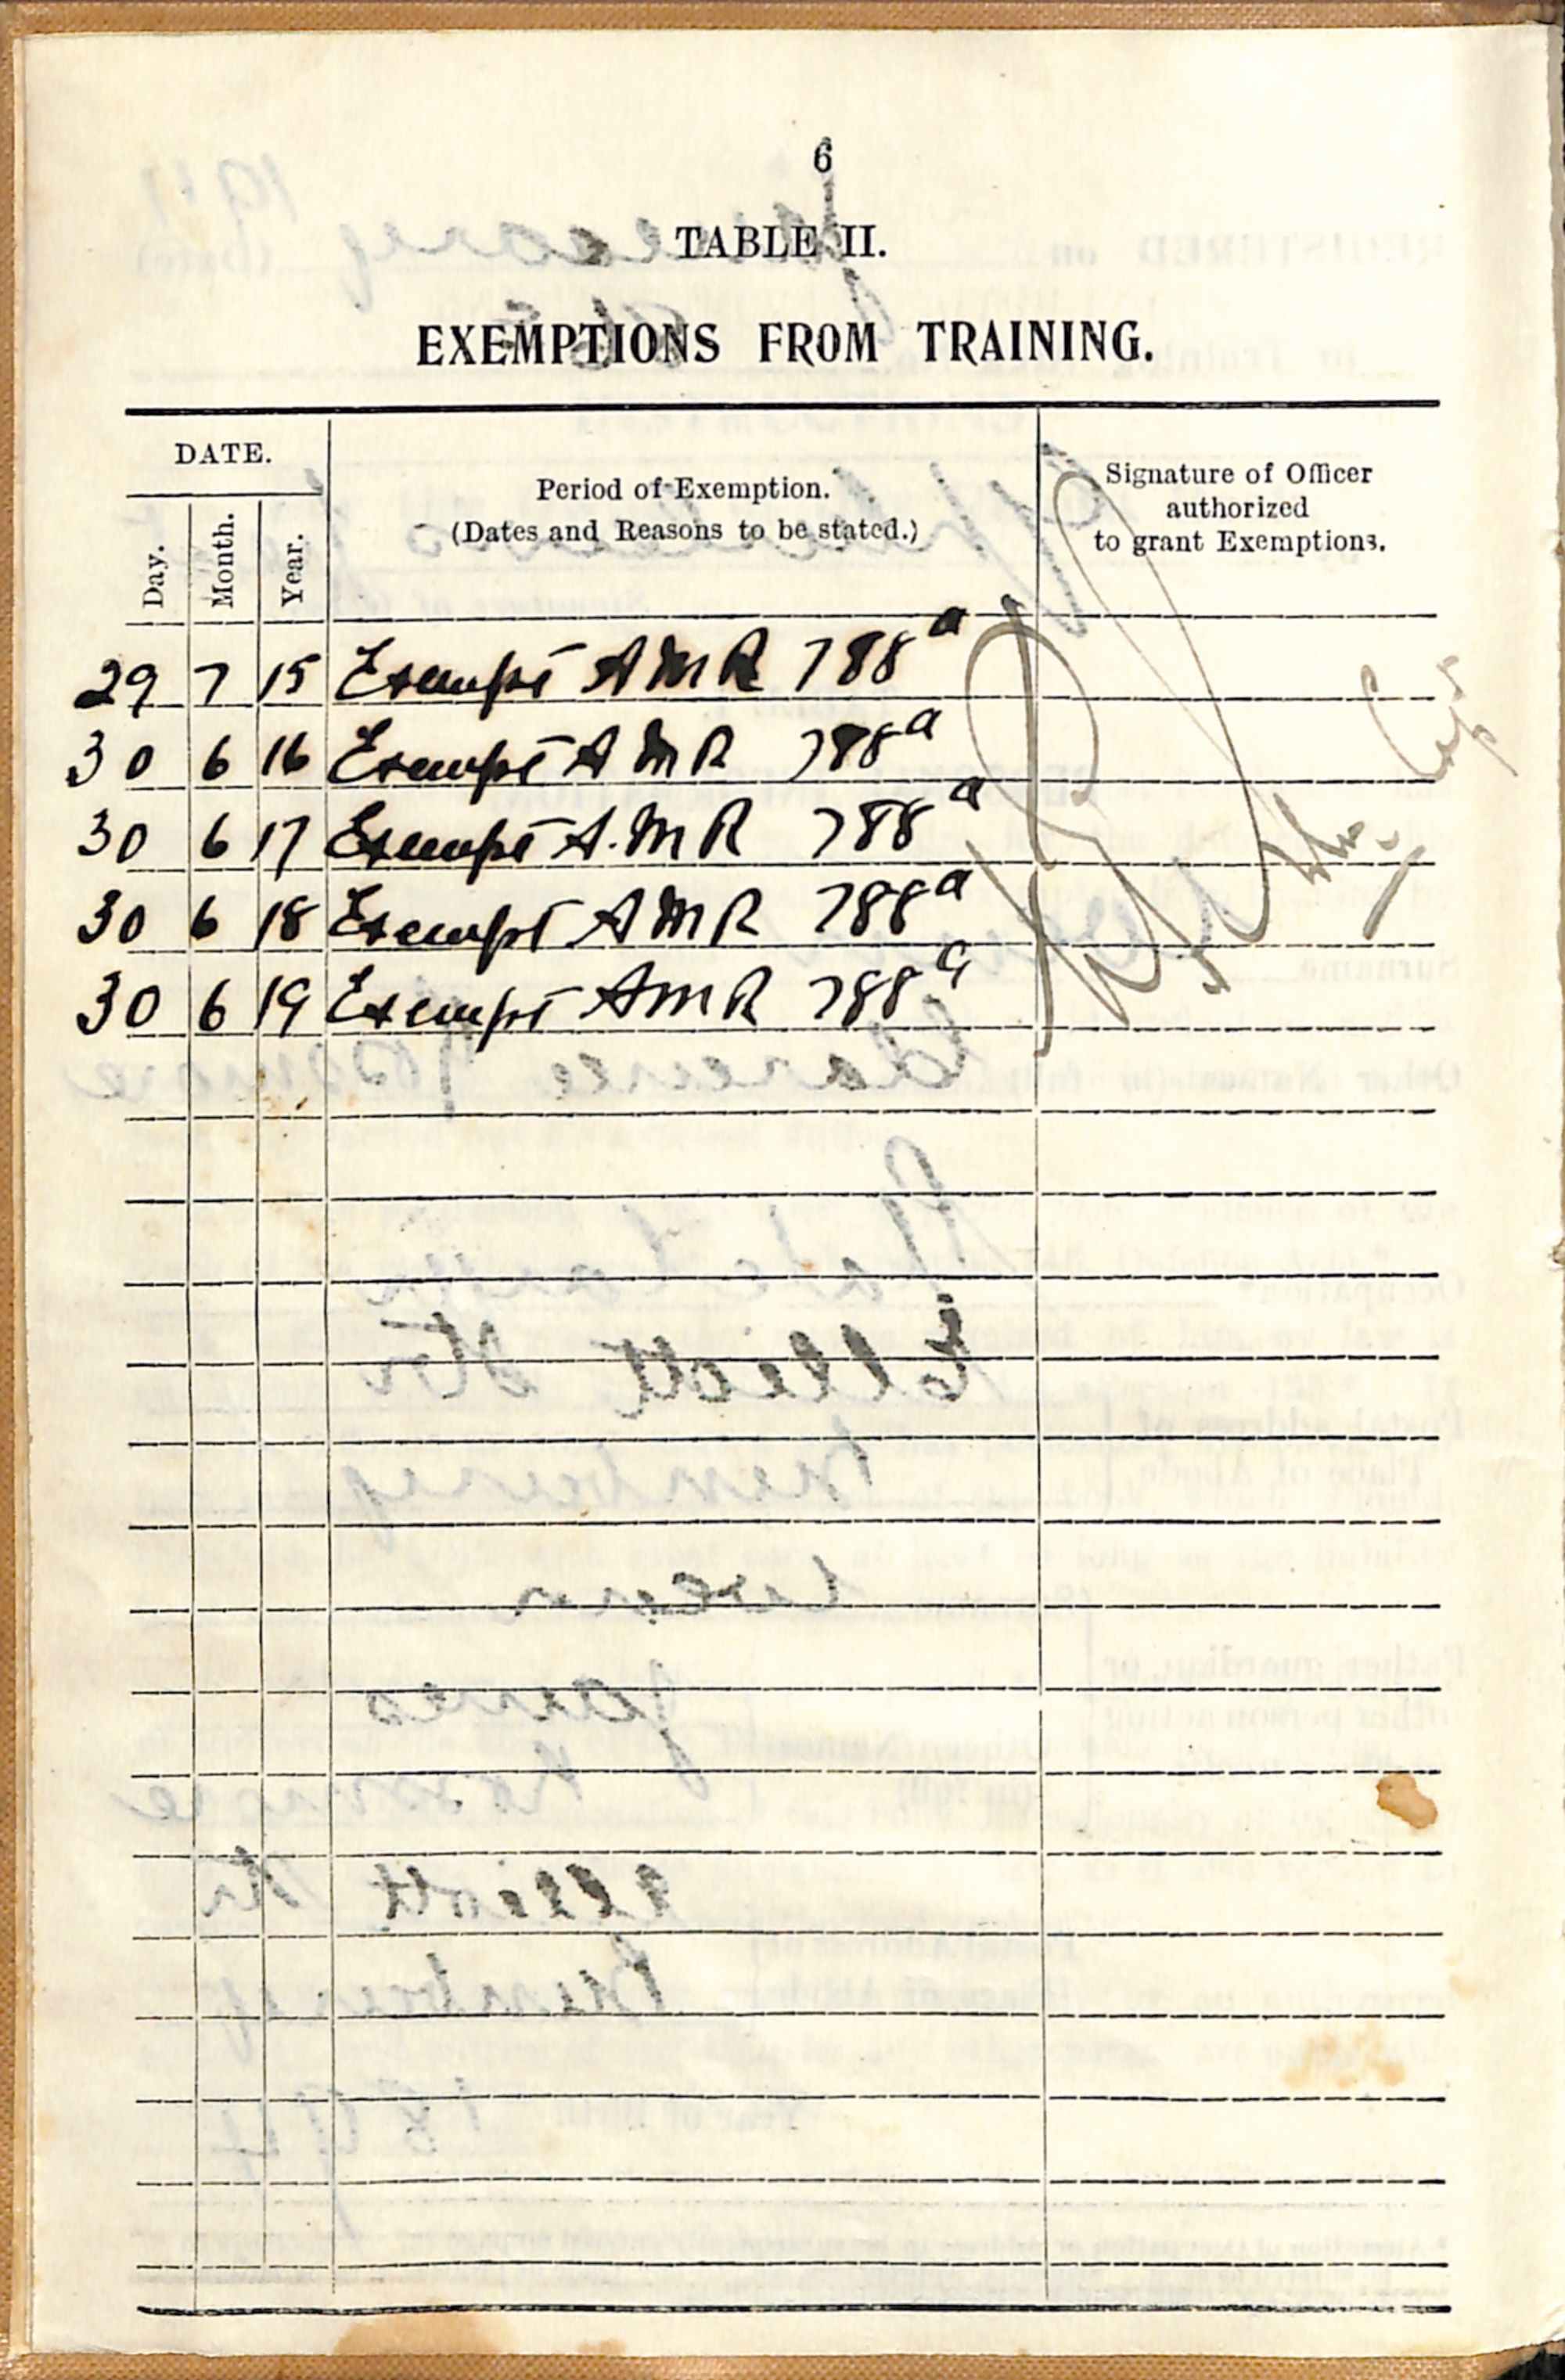 6
TABLE II.
EXEMPTIONS FROM TRAINING.
DATE.
Day. Month. Year.
Period of Exemption.
(Dates and Reasons to be stated.)
Signature of Officer
authorized
to grant Exemptions.
29 7 15 Exempt A M R 788a
30 6 16 Exempt A M R 788a
30 6 17 Exempt A. M R 788a
30 6 18 Exempt A M R 788a
30 6 19 Exempt A M R 788a